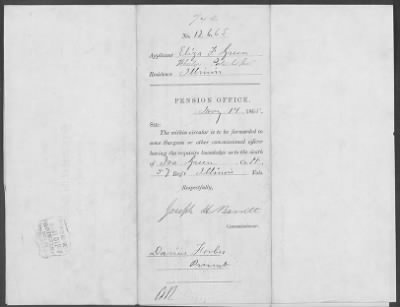 No. 12665
Applicant Eliza F. Green
Residence Illinois
PENSION OFFICE,
Jany 17 1865.
SIR:
The within circular is to be forwarded to
some Surgeon or other commissioned officer
having the requisite knowledge as to the death
of Green Co. H.
57 Reg't Illinois Vols.
Respectfully,
Joseph H. Barrett
Commissioner.
Darius Forbes
Present